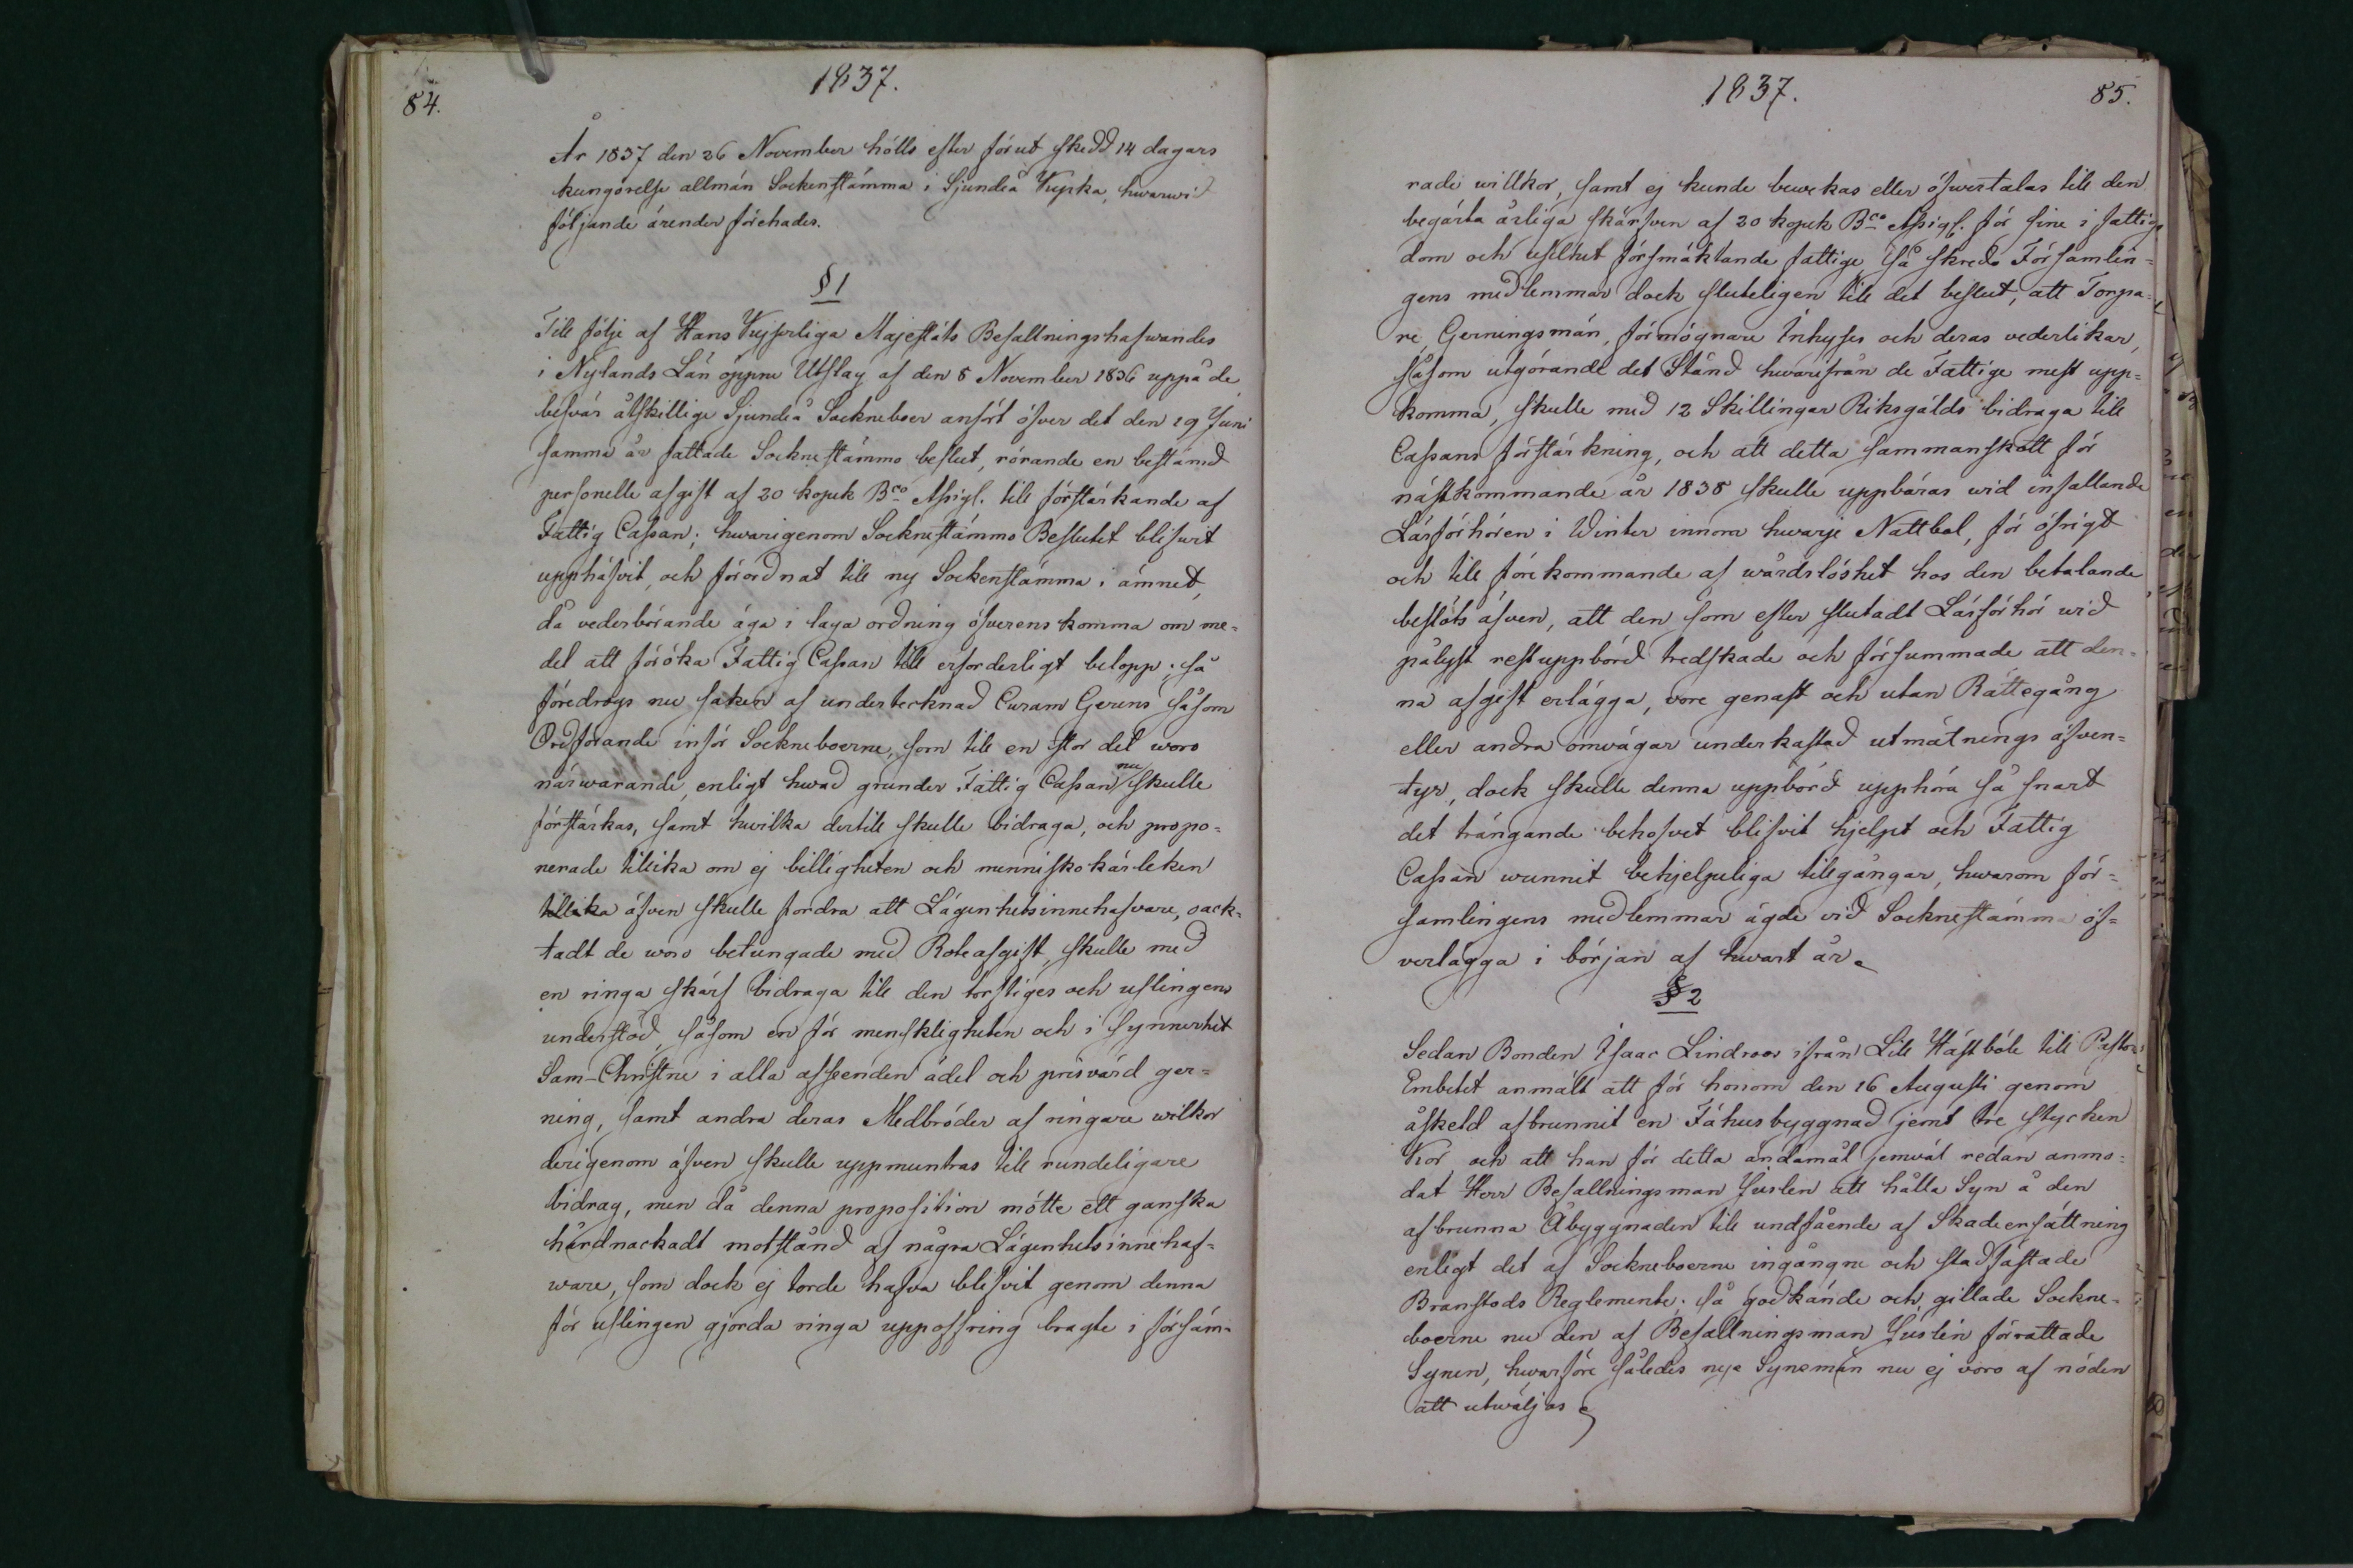 84.
1837.
År 1837 den 26 November hölls efter förut skedd 14 dagars
kungörelse allmän Sockenstämma i Sjundeå Kyrka, hwarwid
följande ärender förehades.
§ 1
Till följe af Hans Kejserliga Majestäts Befallningshafwandes
i Nylands Län öppne Utslag af den 8 November 1836 uppå de
besvär åtskillige Sjundeå Sockneboer anfört öfver det den 19 Juni
samma år fattade Socknestämmo beslut, rörande en bestämd
personelle afgift af 20 kopek Bco Assigs. till förstärkande af
Fattig Cassan; hwarigenom Socknestämmo Beslutet blifwit
upphäfvit, och förordnat till ny Sockenstämma i ämnet,
då vederbörande äga i laga ordning öfverenskomma om me=
del att föröka Fattig Cassan till erforderligt belopp; så
föredrogs nu saken af undertecknad Curam Gerens såsom
Ordförande inför Sockneboerne, som till en stor del woro
närwarande, enligt hwad grunder Fattig Cassan nu skulle
förstärkas, samt hwilka dertill skulle bidraga, och propo=
nerade tillika om ej billigheten och menniskokärleken
tillika äfven skulle fordra att Lägenhetsinnehafvare, oack=
tadt de woro betungade med Roteafgift, skulle med
en ringa skärf bidraga till den torftiges och uslingens
understöd, såsom en för menskligheten och i synnerhet
Sam-Christne i alla afseenden ädel och prisvärd ger=
ning, samt andra deras Medbröder af ringare wilkor
derigenom äfven skulle uppmuntras till rundeligare
bidrag, men då denna proposition mötte ett ganska
hårdnackadt motstånd af några Lägenhetsinnehaf=
ware, som dock ej torde hafva blifvit genom denna
för uslingen gjorda ringa uppoffring bragte i försäm=
1837.
85.
rade willkor, samt ej kunde bewekas eller öfwertalas till den
begärta årliga skärfven af 20 kopek Bco Assigs. för sine i fattig
dom och uselhet försmäktande fattige så skredo Församlin=
gens medlemmar dock sluteligen till det beslut, att Torpa=
re, Gerningsmän, förmögnare Inhyses och deras vederlikar,
såsom utgörande det Stånd hwarifrån de Fattige mest upp=
komma, skulle med 12 Skillingar Riksgälds bidraga till
Cassans förstärkning, och att detta sammanskott för
nästkommande år 1838 skulle uppbäras wid infallande
Läsförhören i Winter innom hwarje Nattbol, för öfrigt
och till förekommande af wårdslöshet hos den betalande
beslöts äfven, att den som efter slutadt Läsförhör wid
pålyst restuppbörd tredskade och försummade att den=
na afgift erlägga, vore genast och utan Rättegång
eller andra omvägar underkastad utmätnings äfven=
tyr, dock skulle denna uppbörd upphöra så snart
det trängande behofvet blifvit hjelpt och Fattig
Cassan wunnit behjelpeliga tillgångar, hwarom för=
samlingens medlemmar ägde vid Socknestämma öf=
verlägga i början af hwart år.
§ 2
Sedan Bonden Isaac Lindroos ifrån Lill Hästböle till Pastors
Embetet anmält att för honom den 16 Augusti genom
åskeld afbrunnit en Fähusbyggnad jemt tre stycken
Kor och att han för detta ändamål jemväl redan anmo=
dat Herr Befallningsman Juslin att hålla Syn å den
afbrunna Åbyggnaden till undfående af Skadeersättning
enligt det af Sockneboerne ingångne och stadfästade
Branstods Reglemente; så godkände och gillade Sockne=
boerne nu den af Befallningsman Juslin förrattade
Synen, hwarföre således nya Synemän nu ej voro af nöden
att utwäljas